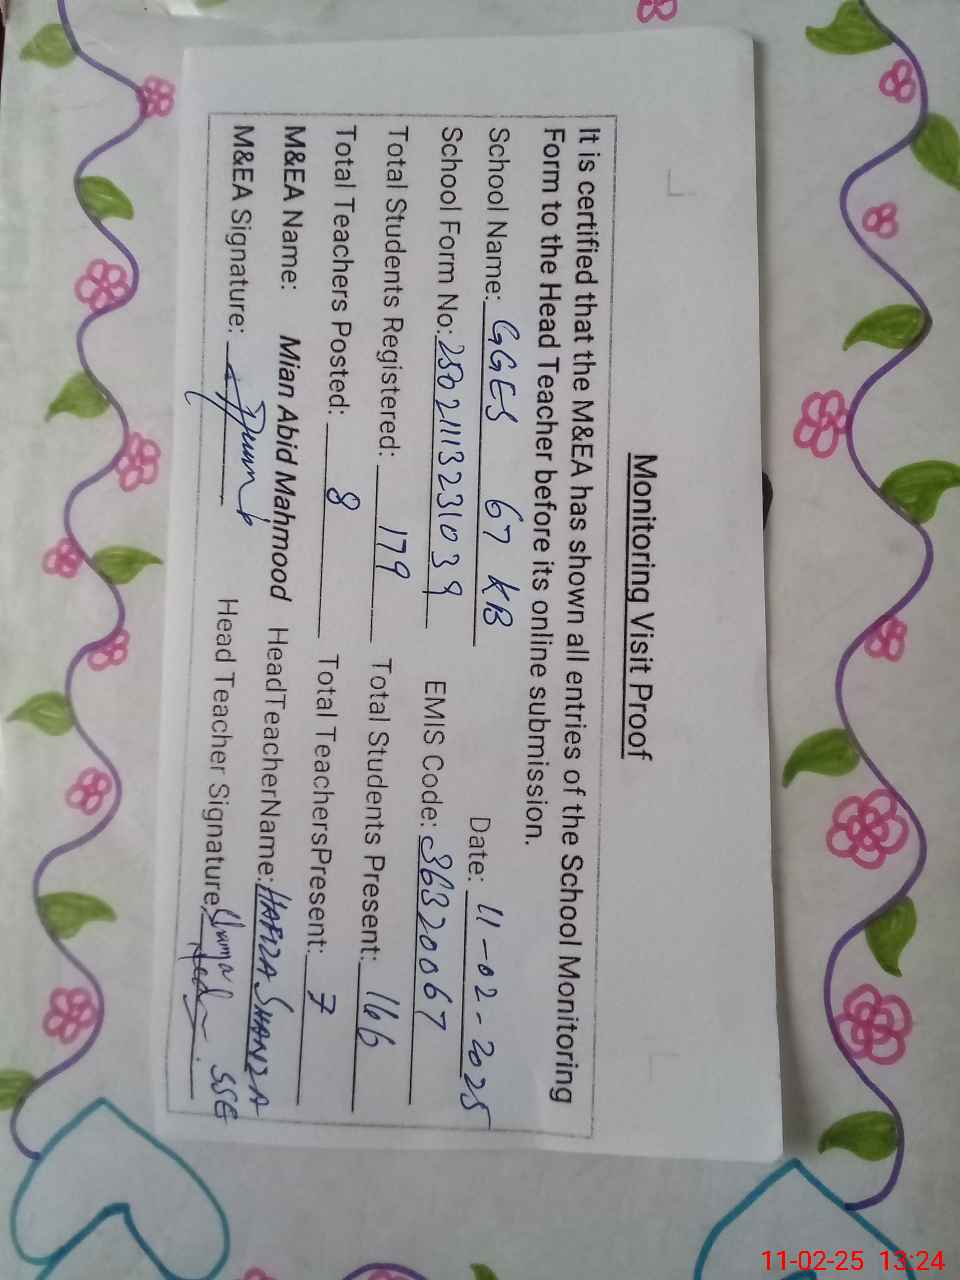 Monitoring Visit Proof
It is certified that the M&EA has shown all entries of the School Monitoring
Form to the Head Teacher before its online submission.
School Name: GGES 67 KB Date: 11-02-2025
School Form No: 25021113231039 EMIS Code: 36320067
Total Students Registered: 179 Total Students Present: 166
Total Teachers Posted: 8 Total TeachersPresent: 7
M&EA Name: Mian Abid Mahmood HeadTeacherName: HAFIZA SHANZA
M&EA Signature: Head Teacher Signature, SSE
11-02-25 13:24